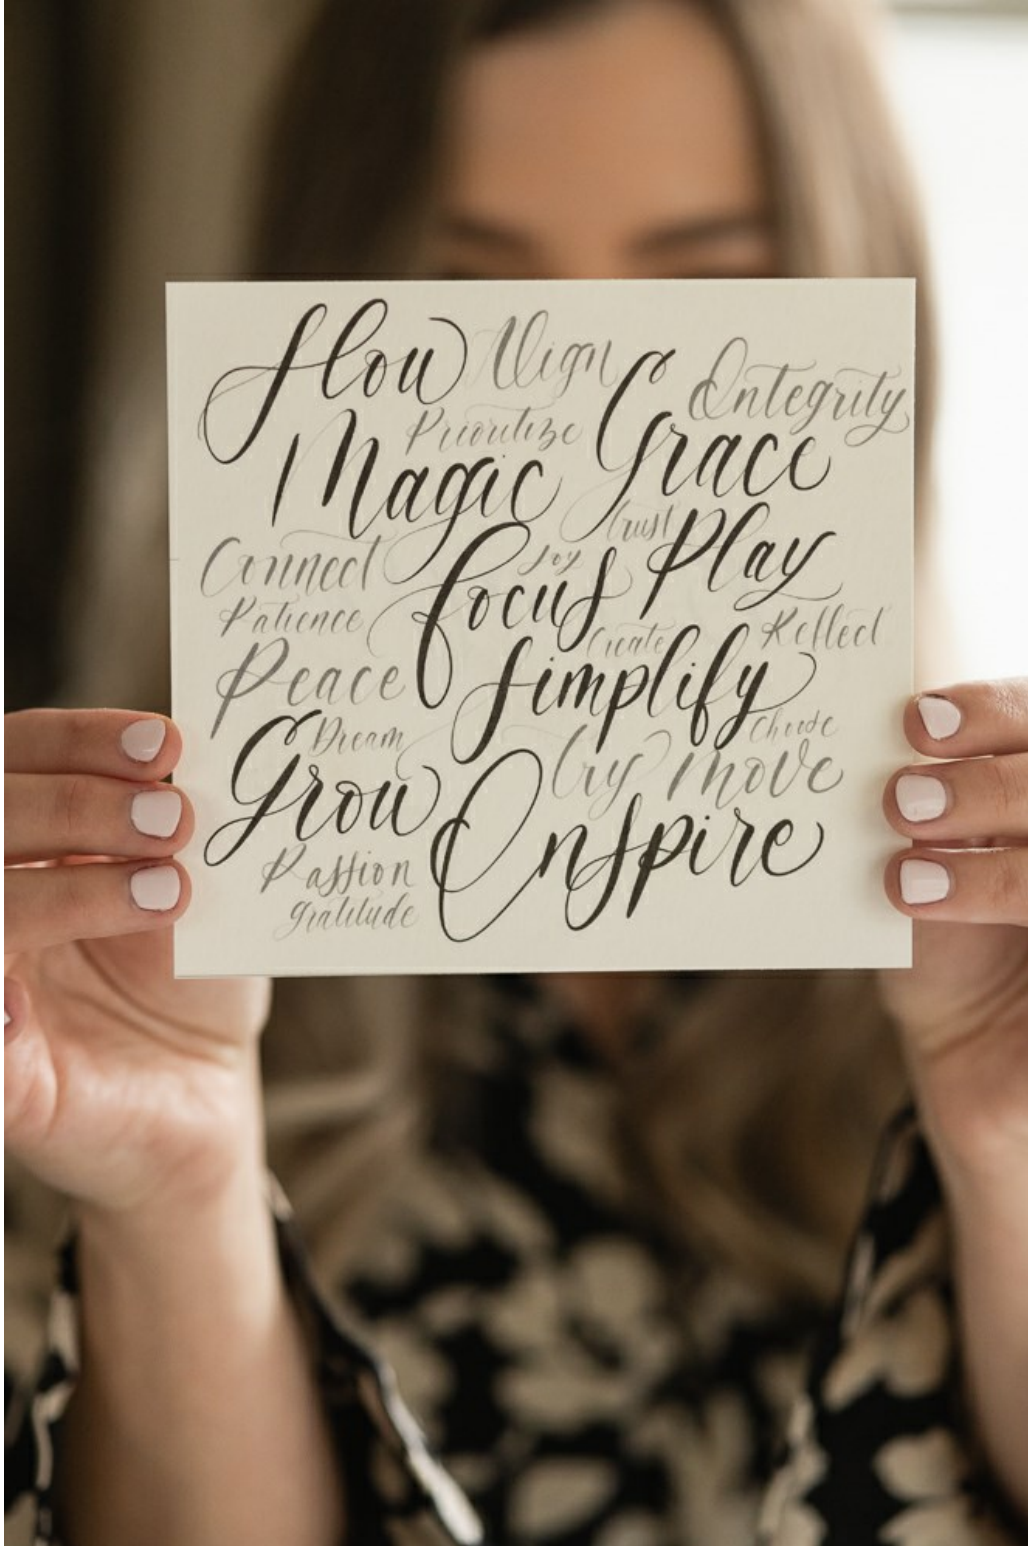 Slow Align Integrity
Prioritize Grace
Magic
Trust Play
Connect Joy
focus
Patience Create Reflect
Peace Simplify
Dream Choose
Grow Try Move
Inspire
Passion
gratitude